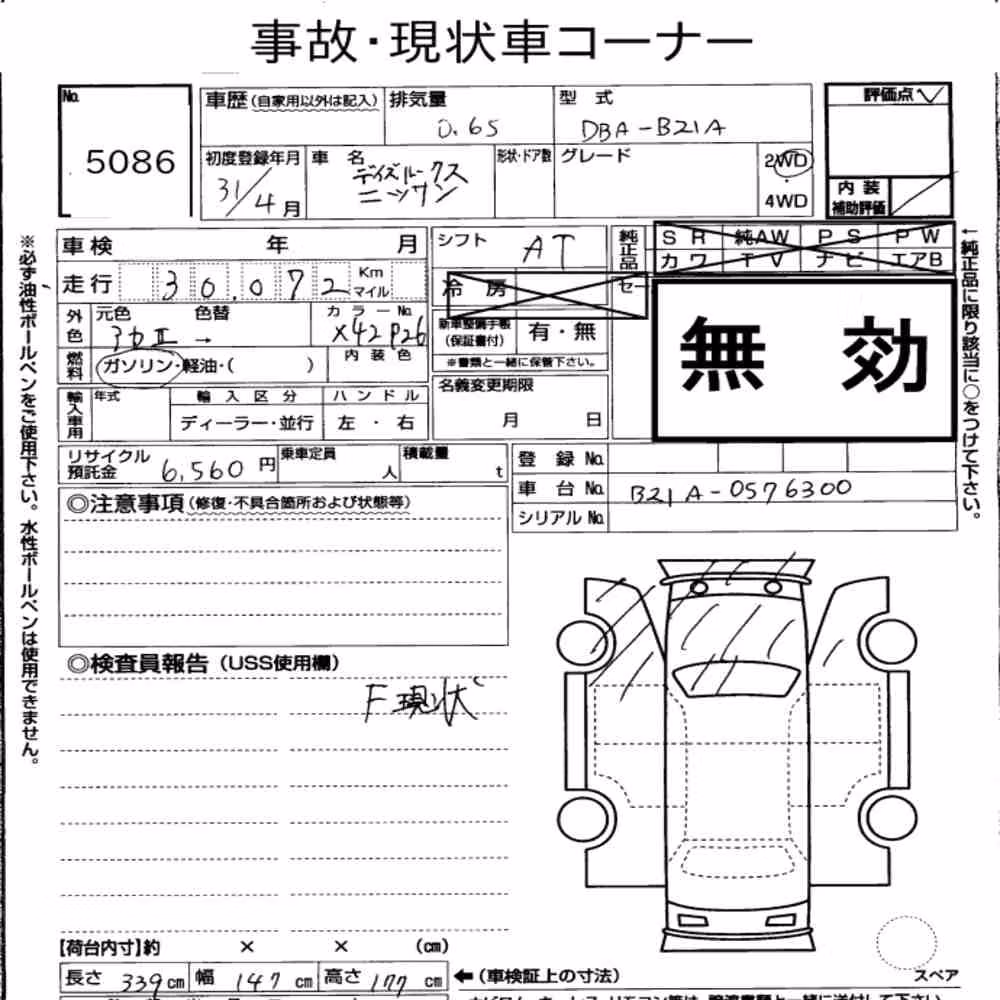 事故・現状車コーナー
No. 5086
車歴(自家用以外は記入) 排気量 0.65 型式 DBA-B21A
評価点
初度登録年月 31/4月 車名 デイズルークス ニッサン 形状・ドア数 グレード 2WD 4WD
内装補助評価
車検 年 月 シフト AT 純正品 SR 純AW PS PW
カワ TV ナビ エアB
走行 30,072 Km マイル 冷房 セー
外色 元色 色替 カラーNo. X42P26
→
新車整備手帳(保証書付) 有・無
※書類と一緒に保管下さい。
内装色
燃料 ガソリン・軽油・( )
無効
名義変更期限 月 日
輸入車用 年式 輸入区分 ハンドル
ディーラー・並行 左・右
リサイクル預託金 6,560円 乗車定員 人 積載量 t
登録No.
車台No. B21A-0576300
シリアルNo.
◎注意事項(修復・不具合箇所および状態等)
◎検査員報告(USS使用欄)
F現状
【荷台内寸】約 × × (cm)
長さ 339cm 幅 147cm 高さ 177cm ←(車検証上の寸法)
スペア
※必ず油性ボールペンをご使用下さい。水性ボールペンは使用できません。
←純正品に限り該当に○をつけて下さい。